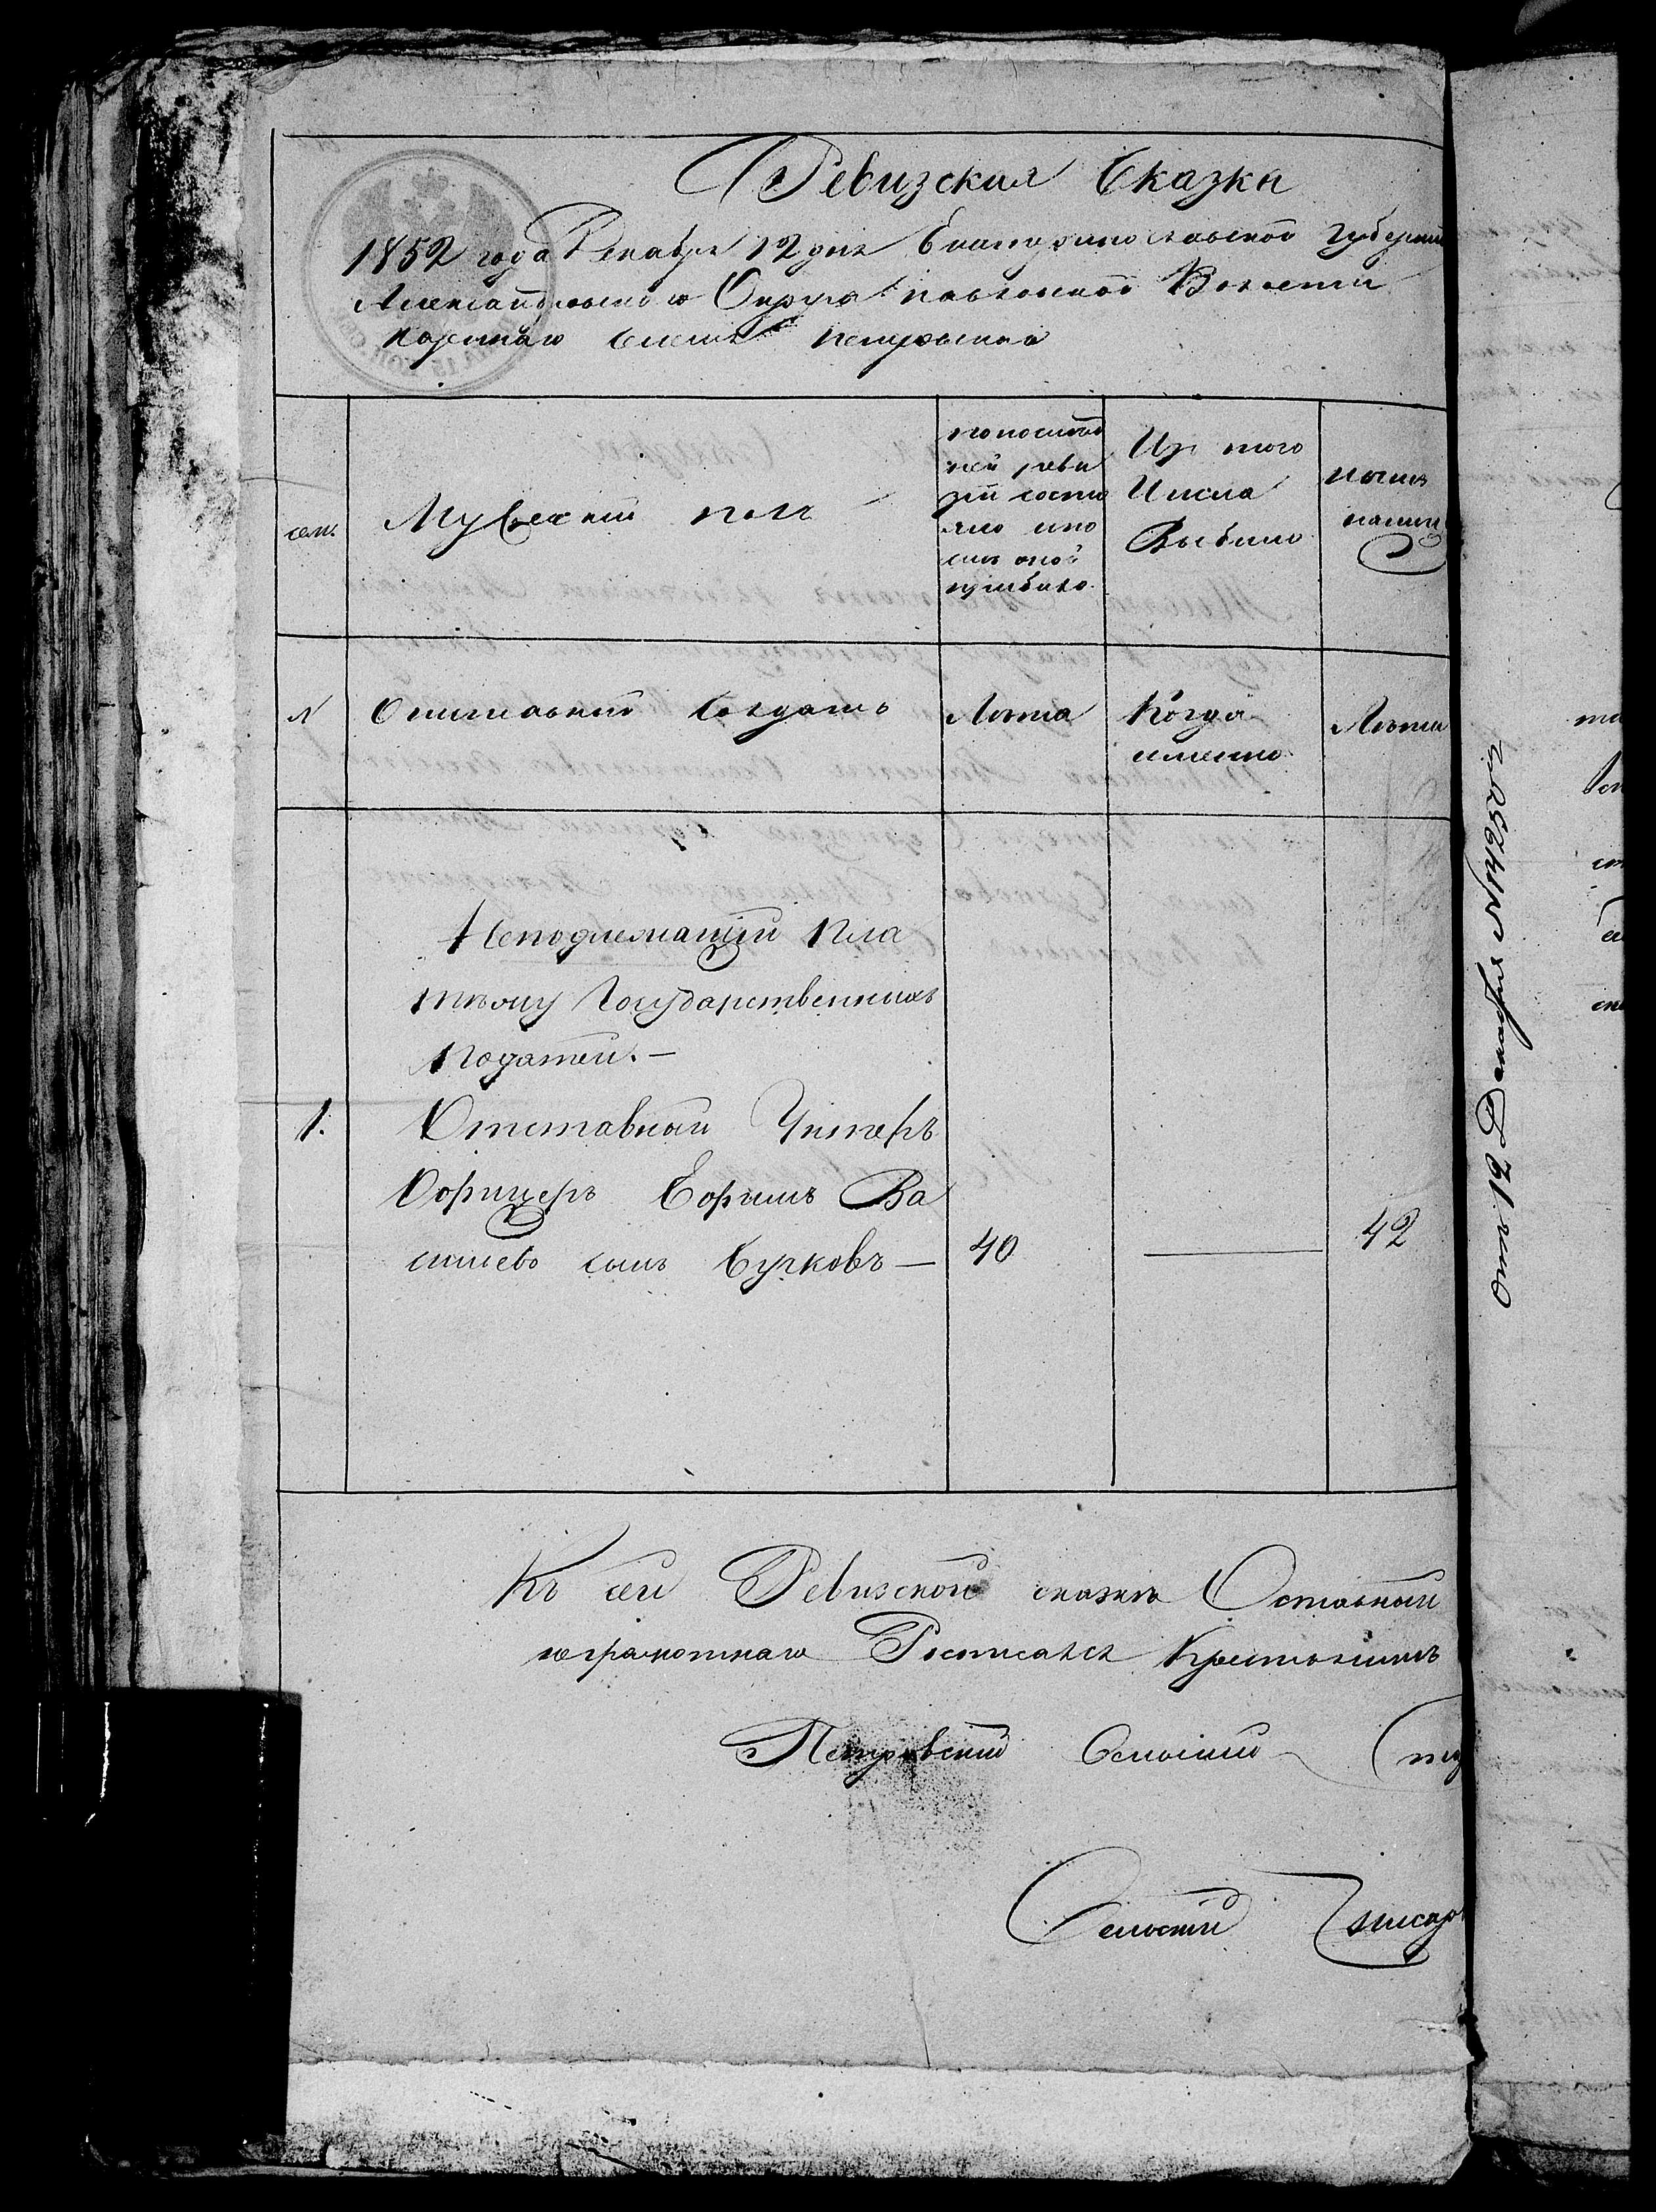 Ревизская Сказка
1852 года Декабря 12 дня Екатеринославской Губернии
Александровского Округа Павловской Волости
Казеннаго селенія Петровкаго
сем.
Мужескій полъ
по послѣд
ней реви
зіи состо
яло и по
слѣ оной
прибыло
Из того
Числа
Выбыло
нынѣ
налицо
№
Отставный Солдатъ
Лѣта
Когда
именно
Лѣта
Неподлежащій Пла
тежу Государственныхъ
Податей. —
1.
Отставной Унтеръ
Офицеръ Ефимъ Ва
сильевъ сынъ Сучковъ —
40
42
Къ сей Ревизской сказкѣ Отставный
неграмотнаго Росписался Крестьянинъ
Петровскій Сельскій
Сельскій Писарь
Отъ 12 Декабря 1852 г